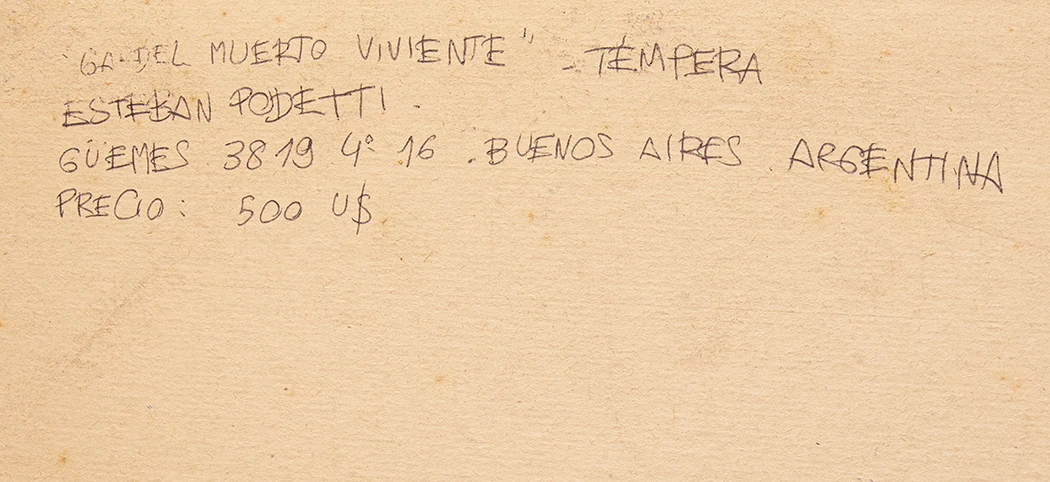 "GA. DEL MUERTO VIVIENTE" - TÉMPERA
ESTEBAN PODETTI.
GÜEMES 3819 4º 16 . BUENOS AIRES ARGENTINA
PRECIO: 500 U$